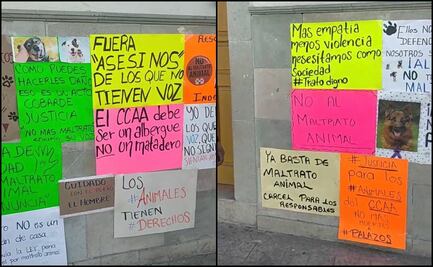 COMO PUEDES
HACERLES DAÑO
ESO ES UN ACTO
COBARDE
JUSTICIA
NO MAS MALTRATO
FUERA
"ASESINOS"
DE LOS QUE NO
TIENEN VOZ
NO
MALTRATO
ANIMAL
El CCAA debe
Ser un albergue
no un matadero
YO
DE LOS
QUE
VOZ,
QUE
NO
MALTRATO
ANIMAL
CUIDADO
EL HOMBRE
LOS
#ANIMALES
TIENEN
#DERECHOS
NO es un
de casa
maltrato animal
Mas empatia
menos violencia
nesesitamos como
Sociedad
#Trato digno
Ellos NO
DEFEN
NOSOTROS S
NO AL
MALTRATO
ANIMAL
YA BASTA DE
MALTRATO
ANIMAL
CARCEL PARA LOS
RESPONSABLES
#JUSTICIA
para los
#ANIMALES
del CCAA
NO MAS
MUERTES
A PALAZOS